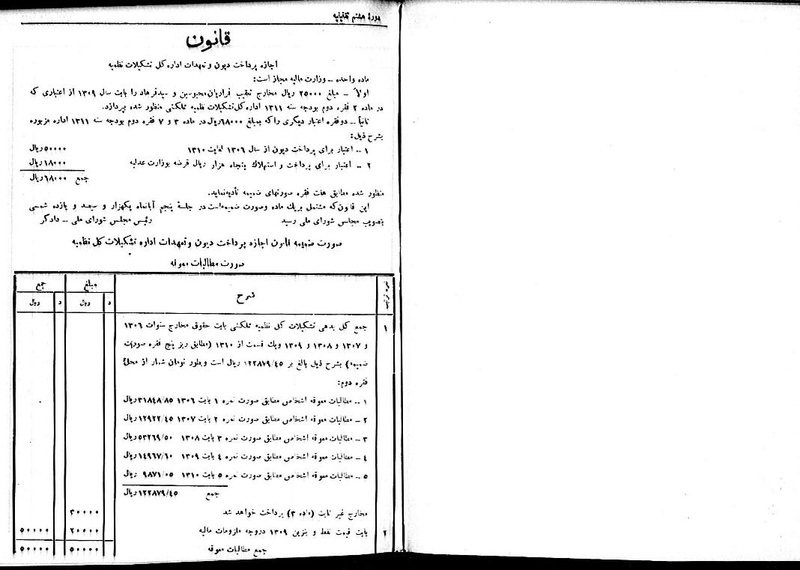 دورۀ هشتم تقنینیه
قانون
اجازه پرداخت دیون و تعهدات اداره کل تشکیلات نظمیه
ماده واحده ــ وزارت مالیه مجاز است:
اولاً ــ مبلغ ۲۵۰۰۰ ریال مخارج تعقیب فراریان محبوسین و سیدفرهاد را بابت سال ۱۳۰۹ از اعتباری که
در ماده ۲ فقره دوم بودجه سنه ۱۳۱۱ اداره کل تشکیلات نظمیه مملکتی منظور شده بپردازد.
ثانیاً ــ دو فقره اعتبار دیگری را که بمبلغ ۶۸۰۰۰ ریال در ماده ۳ و ۷ فقره دوم بودجه سنه ۱۳۱۱ اداره مزبوره
بشرح ذیل:
۱ ــ اعتبار برای پرداخت دیون از سال ۱۳۰۶ لغایت ۱۳۱۰ ۵۰۰۰۰ ریال
۲ ــ اعتبار برای پرداخت و استهلاک پنجاه هزار ریال قرضه بوزارت عدلیه ۱۸۰۰۰ ریال
جمع ۶۸۰۰۰ ریال
منظور شده مطابق هفت فقره صورتهای ضمیمه تأدیه نماید.
این قانون که مشتمل بر یک ماده و صورت ضمیمه است در جلسۀ پنجم آبانماه یکهزار و سیصد و یازده شمسی
بتصویب مجلس شورای ملی رسید رئیس مجلس شورای ملی ــ دادگر
صورت ضمیمه قانون اجازه پرداخت دیون و تعهدات اداره تشکیلات کل نظمیه
صورت مطالبات معوقه
شرح مبلغ جمع
د ریال د ریال
۱ جمع کل بدهی تشکیلات کل نظمیه مملکتی بابت حقوق مخارج سنوات ۱۳۰۶
و ۱۳۰۷ و ۱۳۰۸ و ۱۳۰۹ و یک قسمت از ۱۳۱۰ (مطابق ریز پنج فقره صورت
ضمیمه) بشرح ذیل بالغ بر ۱۲۲۸۷۹/۴۵ ریال است و بطور تومان شمار از محل
فقره دوم:
۱ ــ مطالبات معوقه اشخاص مطابق صورت نمره ۱ بابت ۱۳۰۶ ۳۱۸۴۸/۸۵ ریال
۲ ــ مطالبات معوقه اشخاص مطابق صورت نمره ۲ بابت ۱۳۰۷ ۱۲۹۲۲/۴۵ ریال
۳ ــ مطالبات معوقه اشخاص مطابق صورت نمره ۳ بابت ۱۳۰۸ ۵۳۲۶۹/۵۰ ریال
۴ ــ مطالبات معوقه اشخاص مطابق صورت نمره ۴ بابت ۱۳۰۹ ۱۴۹۶۷/۶۰ ریال
۵ ــ مطالبات معوقه اشخاص مطابق صورت نمره ۵ بابت ۱۳۱۰ ۹۸۷۱/۰۵ ریال
جمع ۱۲۲۸۷۹/۴۵ ریال
مخارج غیر ثابت (ماده ۳) پرداخت خواهد شد ۳۰۰۰۰
۲ بابت قیمت نفط و بنزین ۱۳۰۹ در وجه ملزومات مالیه ۲۰۰۰۰ ۵۰۰۰۰
جمع مطالبات معوقه ۵۰۰۰۰ ۵۰۰۰۰